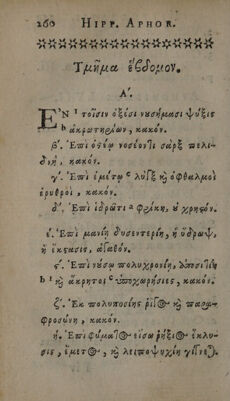 260 HIPP. APHOR.
Τμῆμα ἕβδομον.
Α΄.
ΕΝ τοῖσιν ὀξέσι νυσήμασι ψῦξις
b ἀκρωτηρίων, κακόν.
β΄. Ἐπὶ ὀστέῳ νοσέοντι σὰρξ πελι-
δνὴ, κακόν.
γ΄. Ἐπὶ ἐμέτῳ λὺγξ καὶ ὀφθαλμοὶ
ἐρυθροὶ, κακόν.
δ΄. Ἐπὶ ἱδρῶτι a φρίκη, οὐ χρηστόν.
ε΄. Ἐπὶ μανίῃ δυσεντερίη, ἢ ὕδρωψ,
ἢ ἔκστασις, ἀγαθόν.
ς΄. Ἐπὶ νύσῳ πολυχρονίῃ, ἀποσιτίη
b καὶ ἄκρητοι c ὑποχωρήσιες, κακόν.
ζ΄. Ἐκ πολυποσίης ῥῖγος καὶ παρα-
φροσύνη, κακόν.
η΄. Ἐπὶ φύματος εἴσω ῥήξει ἔκλυ-
σις, ἔμετος, καὶ λειποψυχίη γίνεται.